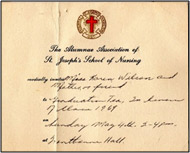 The Alumnae Association of
St. Joseph's School of Nursing
cordially invites Miss Karen Wilson and
Mother or friend
to Graduation Tea In honour
of Class 1968
on Sunday May 4th 2-4 pm.
in Fontbonne Hall.